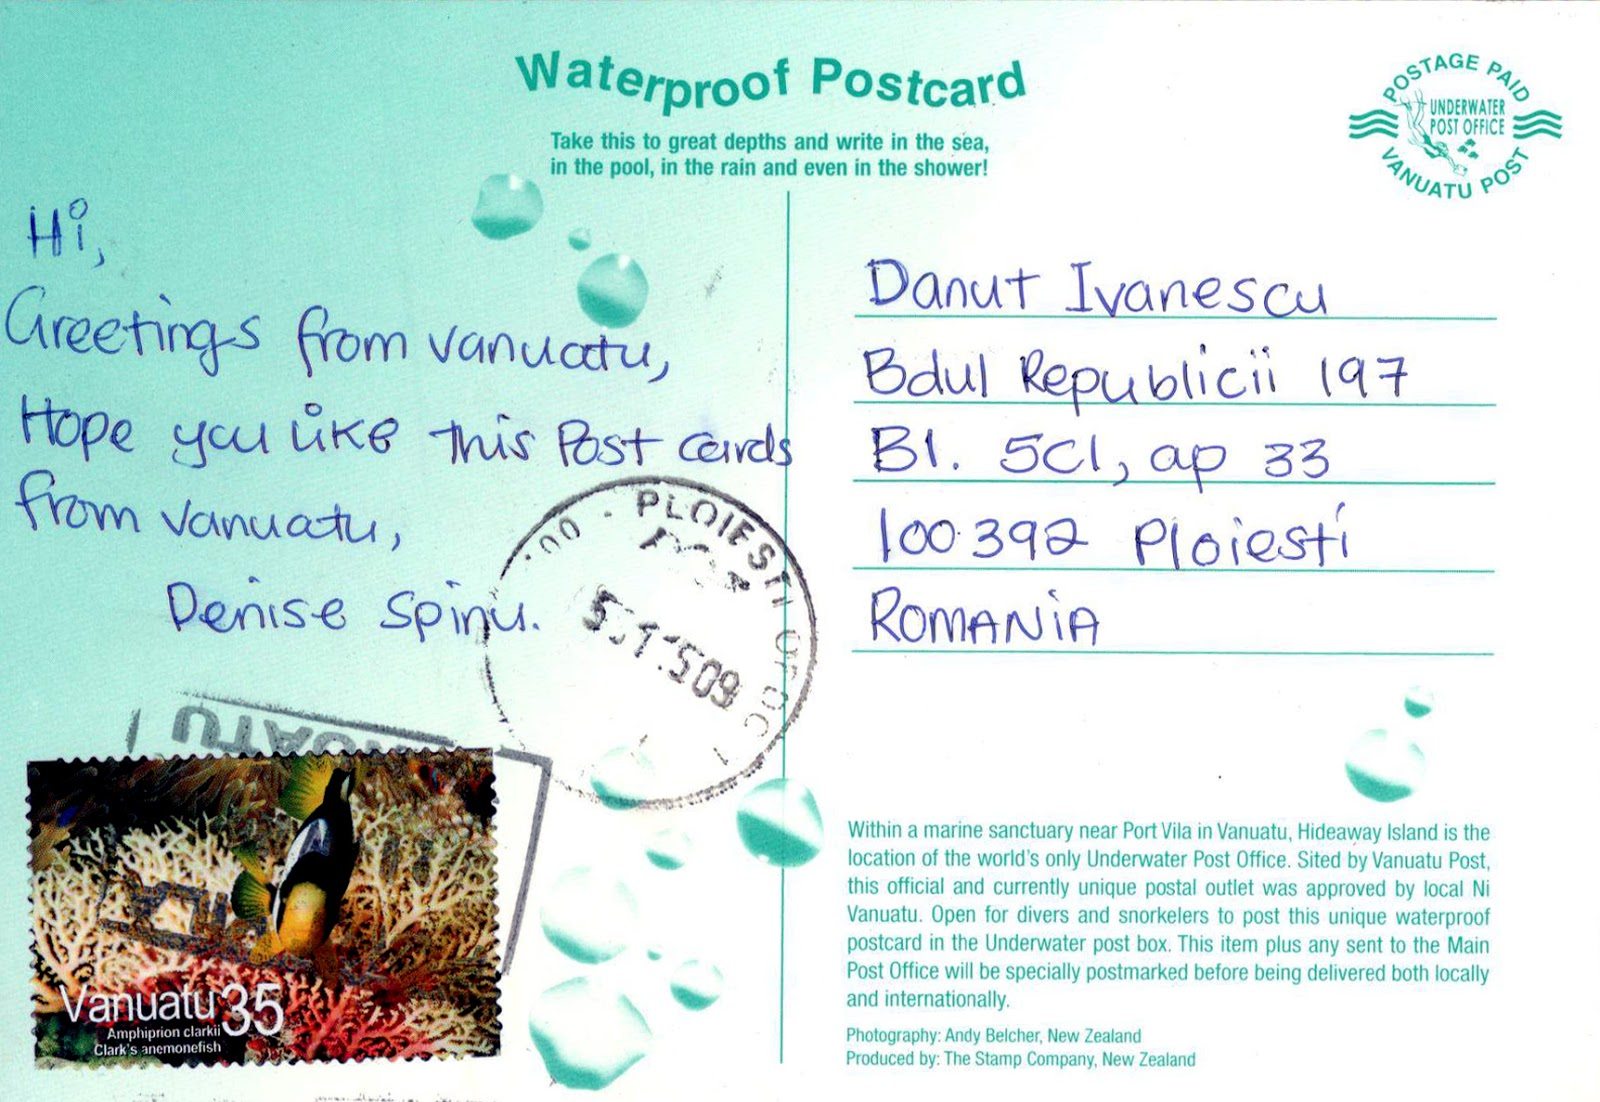 Waterproof Postcard
Take this to great depths and write in the sea,
in the pool, in the rain and even in the shower!
POSTAGE PAID
UNDERWATER
POST OFFICE
VANUATU POST
Hi,
Greetings from Vanuatu,
Hope you like this Post cards
from Vanuatu,
Denise Spinu.
Danut Ivanescu
Bdul Republicii 197
Bl. 5C1, ap 33
100392 Ploiesti
ROMANIA
PLOIESTI
VANUATU
Vanuatu 35
Amphiprion clarkii
Clark's anemonefish
Within a marine sanctuary near Port Vila in Vanuatu, Hideaway Island is the
location of the world's only Underwater Post Office. Sited by Vanuatu Post,
this official and currently unique postal outlet was approved by local Ni
Vanuatu. Open for divers and snorkelers to post this unique waterproof
postcard in the Underwater post box. This item plus any sent to the Main
Post Office will be specially postmarked before being delivered both locally
and internationally.
Photography: Andy Belcher, New Zealand
Produced by: The Stamp Company, New Zealand